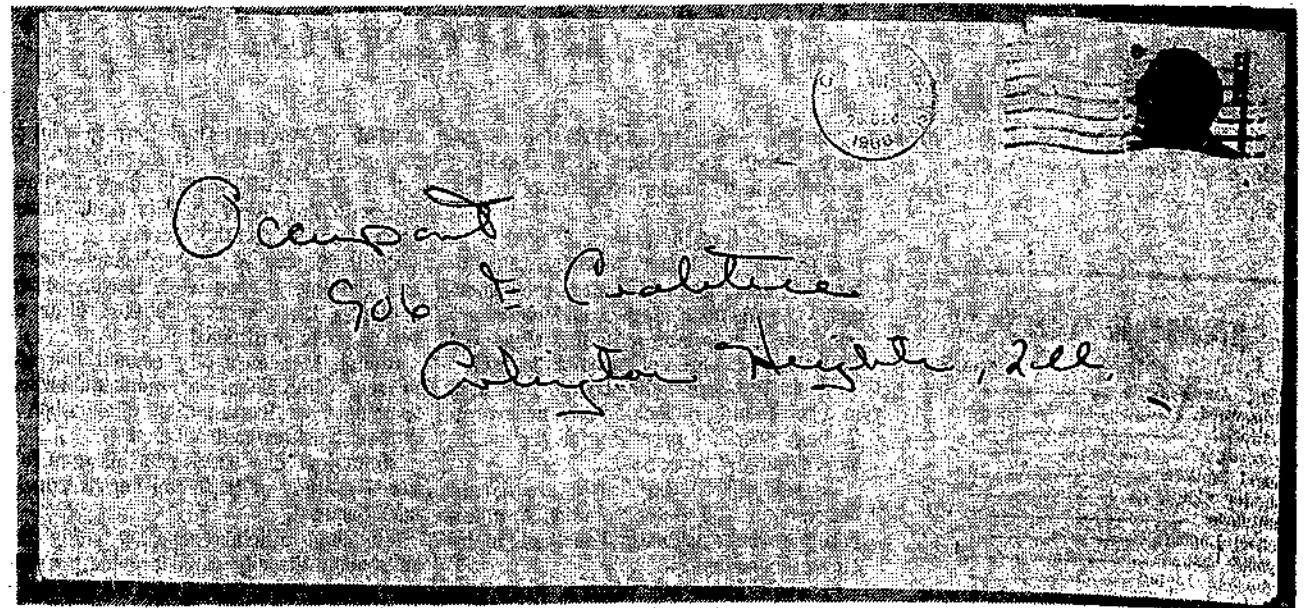 Occupant
906 E Crabtree
Arlington Heights, Ill.